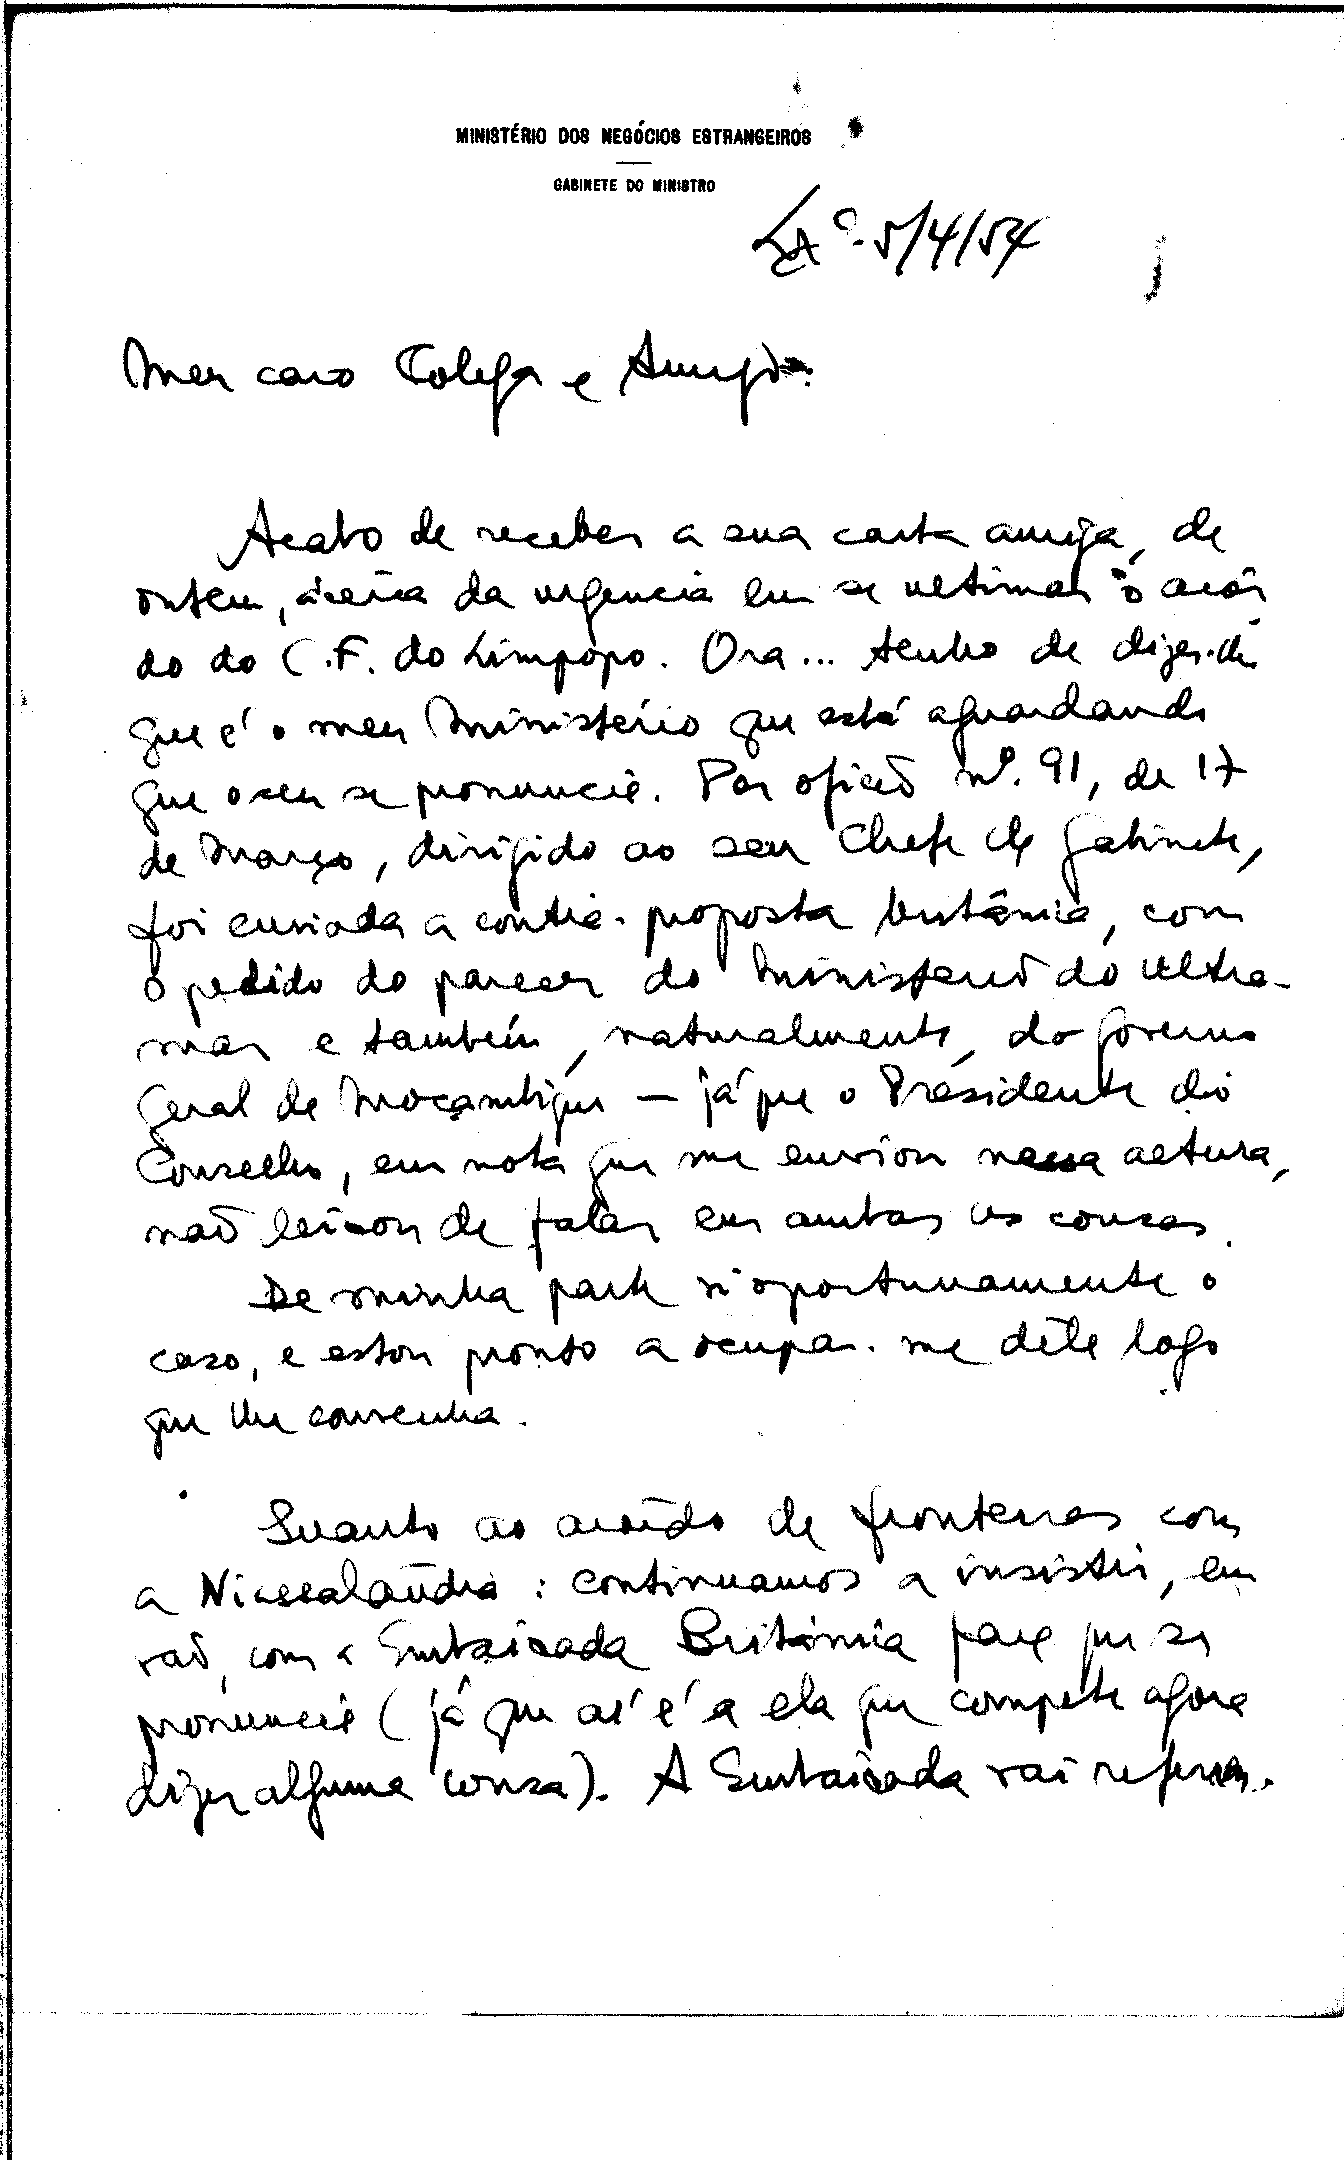 MINISTÉRIO DOS NEGÓCIOS ESTRANGEIROS
GABINETE DO MINISTRO
5/4/54
Meu caro Colega e Amigo:
Acabo de receber a sua carta amiga, de
ontem, àcêrca da urgencia em se ultimar o acôr
do do C.F. do Limpopo. Ora... tenho de dizer-lhe
que é o meu Ministério que está aguardando
que o seu se pronuncie. Por ofício nº. 91, de 17
de Março, dirigido ao seu Chefe de Gabinete,
foi enviada a contra-proposta britânica, com
o pedido do parecer do Ministerio do Ultra-
mar e também, naturalmente, do Governo
Geral de Moçambique — já que o Presidente do
Conselho, em nota que me enviou nessa altura,
não deixou de falar em ambas as cousas.
De minha parte vi oportunamente o
caso, e estou pronto a ocupar-me dêle logo
que lhe convenha.
Quanto ao acôrdo de fronteiras com
a Niassalândia: continuamos a insistir, em
vão, com a Embaixada Britânica para que se
pronuncie (já que aí é a ela que compete agora
dizer alguma cousa). A Embaixada vai